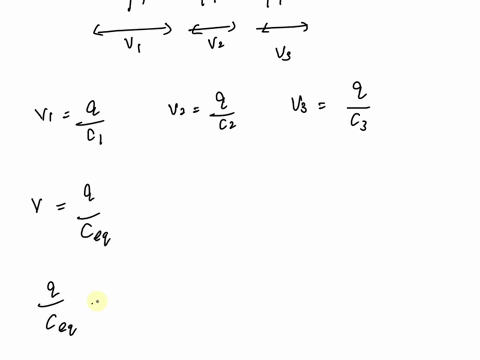 V1 V2 V3
V1 = q/C1 V2 = q/C2 V3 = q/C3
V = q/Ceq
q/Ceq